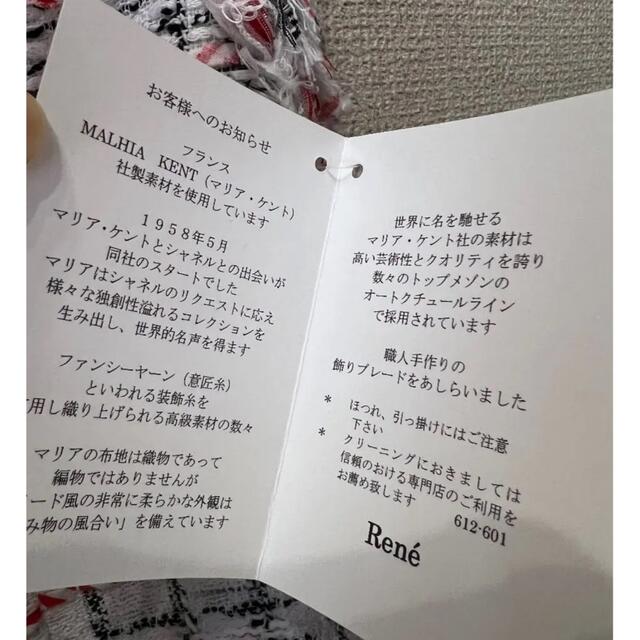 お客様へのお知らせ
フランス
MALHIA KENT(マリア・ケント)
社製素材を使用しています
1958年5月
マリア・ケントとシャネルとの出会いが
同社のスタートでした
マリアはシャネルのリクエストに応え
様々な独創性溢れるコレクションを
生み出し、世界的名声を得ます
ファンシーヤーン(意匠糸)
といわれる装飾糸を
用し織り上げられる高級素材の数々
マリアの布地は織物であって
編物ではありませんが
ード風の非常に柔らかな外観は
み物の風合い」を備えています
世界に名を馳せる
マリア・ケント社の素材は
高い芸術性とクオリティを誇り
数々のトップメゾンの
オートクチュールライン
で採用されています
職人手作りの
飾りブレードをあしらいました
* ほつれ、引っ掛けにはご注意
下さい
* クリーニングにおきましては
信頼のおける専門店のご利用を
お薦め致します
612-601
René